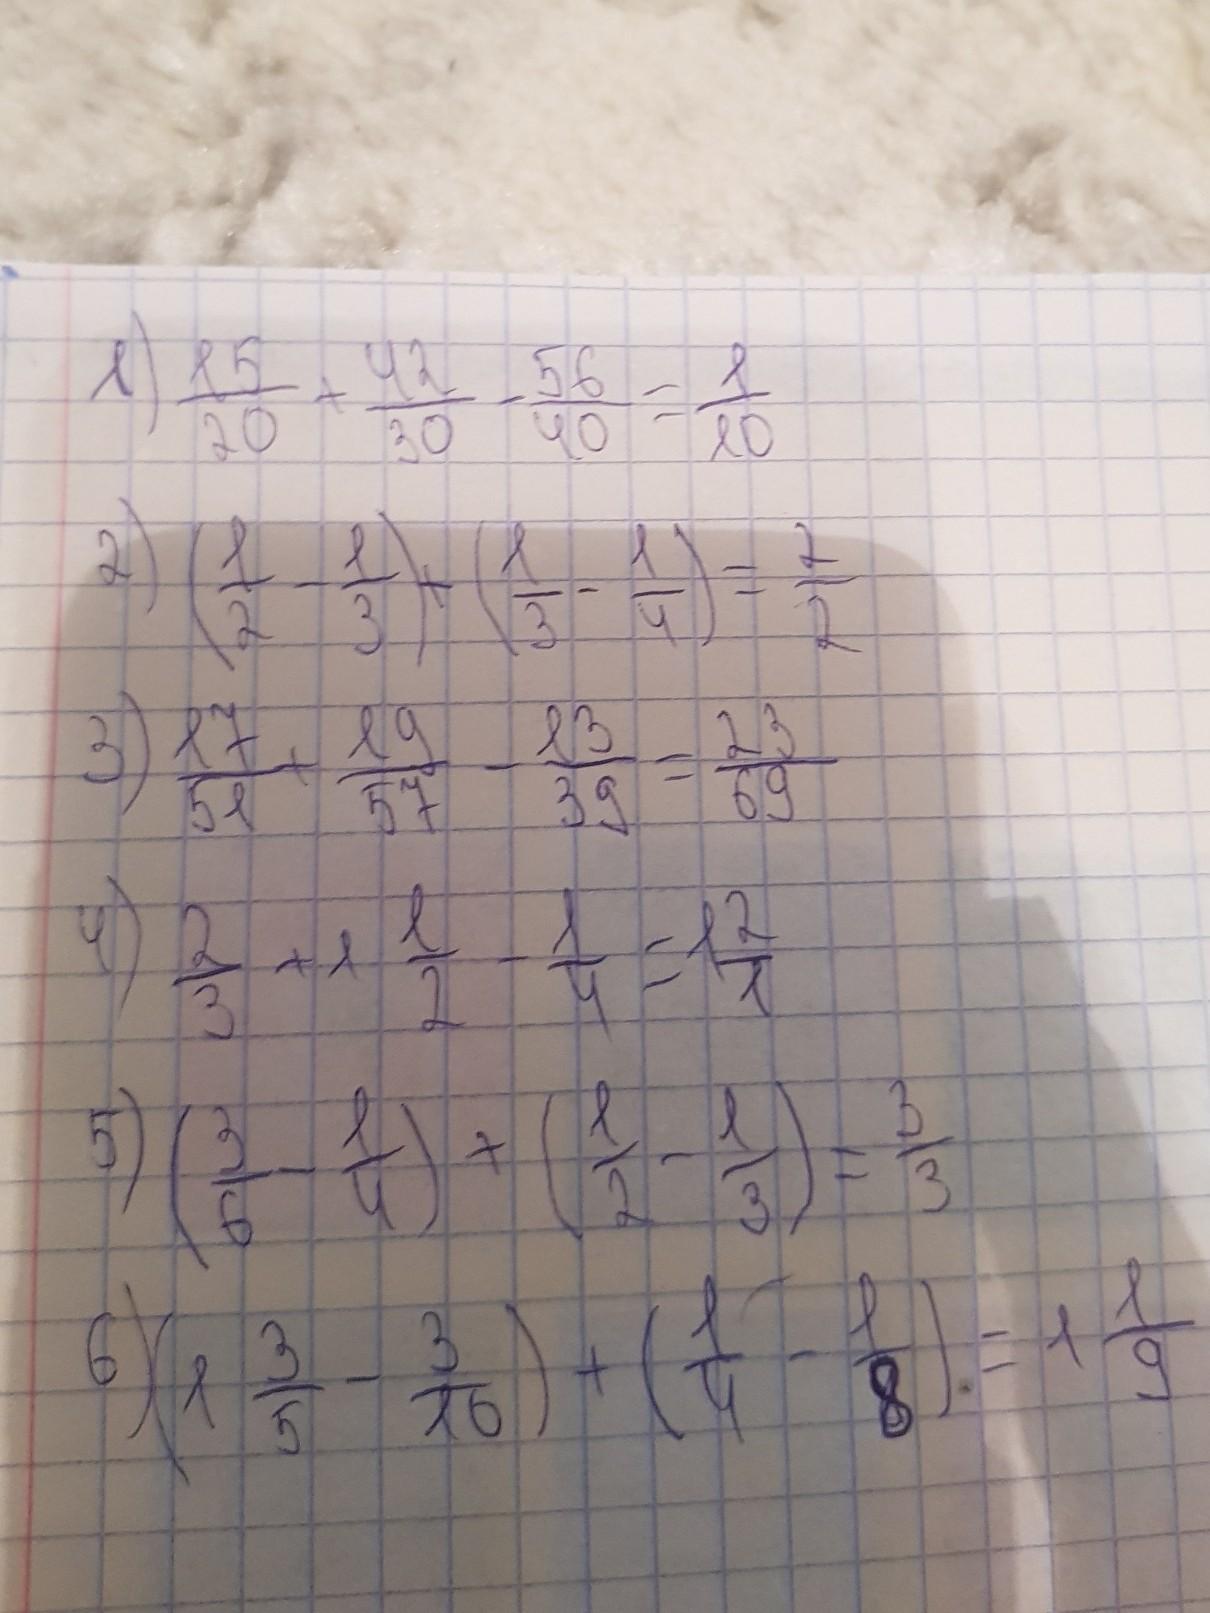 1) 15/20 + 42/30 - 56/40 = 1/10
2) (1/2 - 1/3) + (1/3 - 1/4) = 2/2
3) 17/51 + 19/57 - 13/39 = 23/69
4) 2/3 + 1 1/2 - 1/4 = 1 2/1
5) (3/6 - 1/4) + (1/2 - 1/3) = 3/3
6) (1 3/5 - 3/10) + (1/4 - 1/8) = 1 1/9